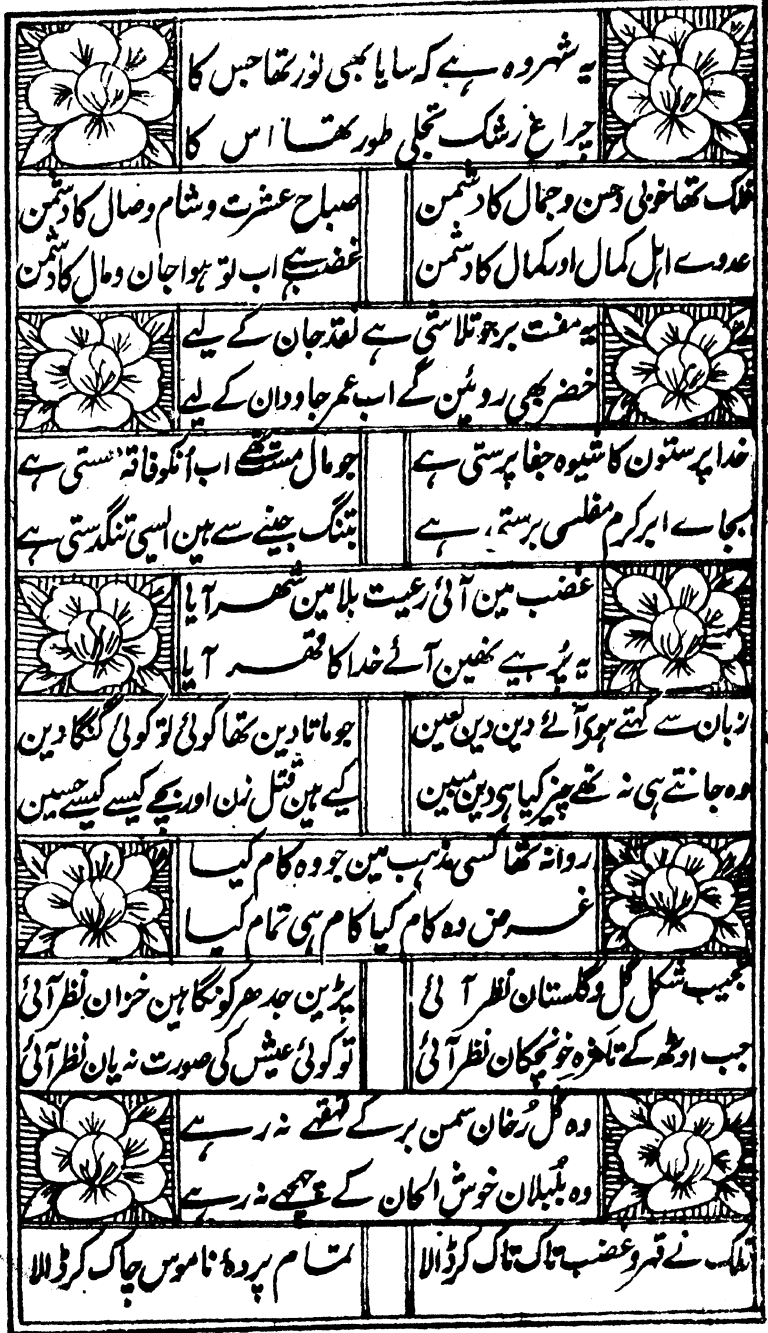 یہ شہر وہ ہے کہ سایا بھی نور تھا جس کا
چراغ رشک تجلی طور تھا اس کا
فلک تھا خوبی و حسن و جمال کا دشمن صباح عشرت و شام وصال کا دشمن
عدوے اہل کمال اور کمال کا دشمن غضب ہے اب تو ہوا جان و مال کا دشمن
یہ مفت بر جو تلاشی ہے نقد جان کے لیے
خضر بھی روئین گے اب عمر جاودان کے لیے
خدا پرستون کا شیوہ جفا پرستی ہے جو مال مست تھے اب اُنکو فاقہ مستی ہے
بجاے ابر کرم مفلسی برستی ہے بتنگ جینے سے ہین ایسی تنگدستی ہے
غضب مین آئی رعیت بلا مین شہر آیا
یہ پُربیے نہین آئے خدا کا قہر آیا
زبان سے کہتے ہوئے آئے دین دین لعین جو ماتادین تھا کوئی تو کوئی گنگا دین
وہ جانتے ہی نہ تھے چیز کیا ہی دین مبین کیے ہین قتل زن اور بچے کیسے کیسے حسین
روا نہ تھا کسی مذہب مین جو وہ کام کیا
غرض وہ کام کیا کام ہی تمام کیا
عجیب شکل گل و گلستان نظر آئی پڑین جدھر کو نگاہین خزان نظر آئی
جب اوٹھ کے تا مژہ خونچکان نظر آئی تو کوئی عیش کی صورت نہ یان نظر آئی
وہ گل رُخان سمن بر کے قہقہے نہ رہے
وہ بُلبلان خوش الحان کے چہچہے نہ رہے
فلک نے قہر و غضب تاک تاک کر ڈالا تمام پردۂ ناموس چاک کر ڈالا